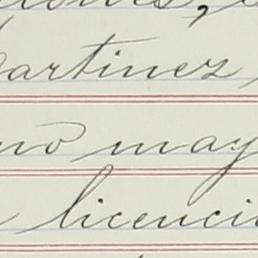 artinez
no may
licenci